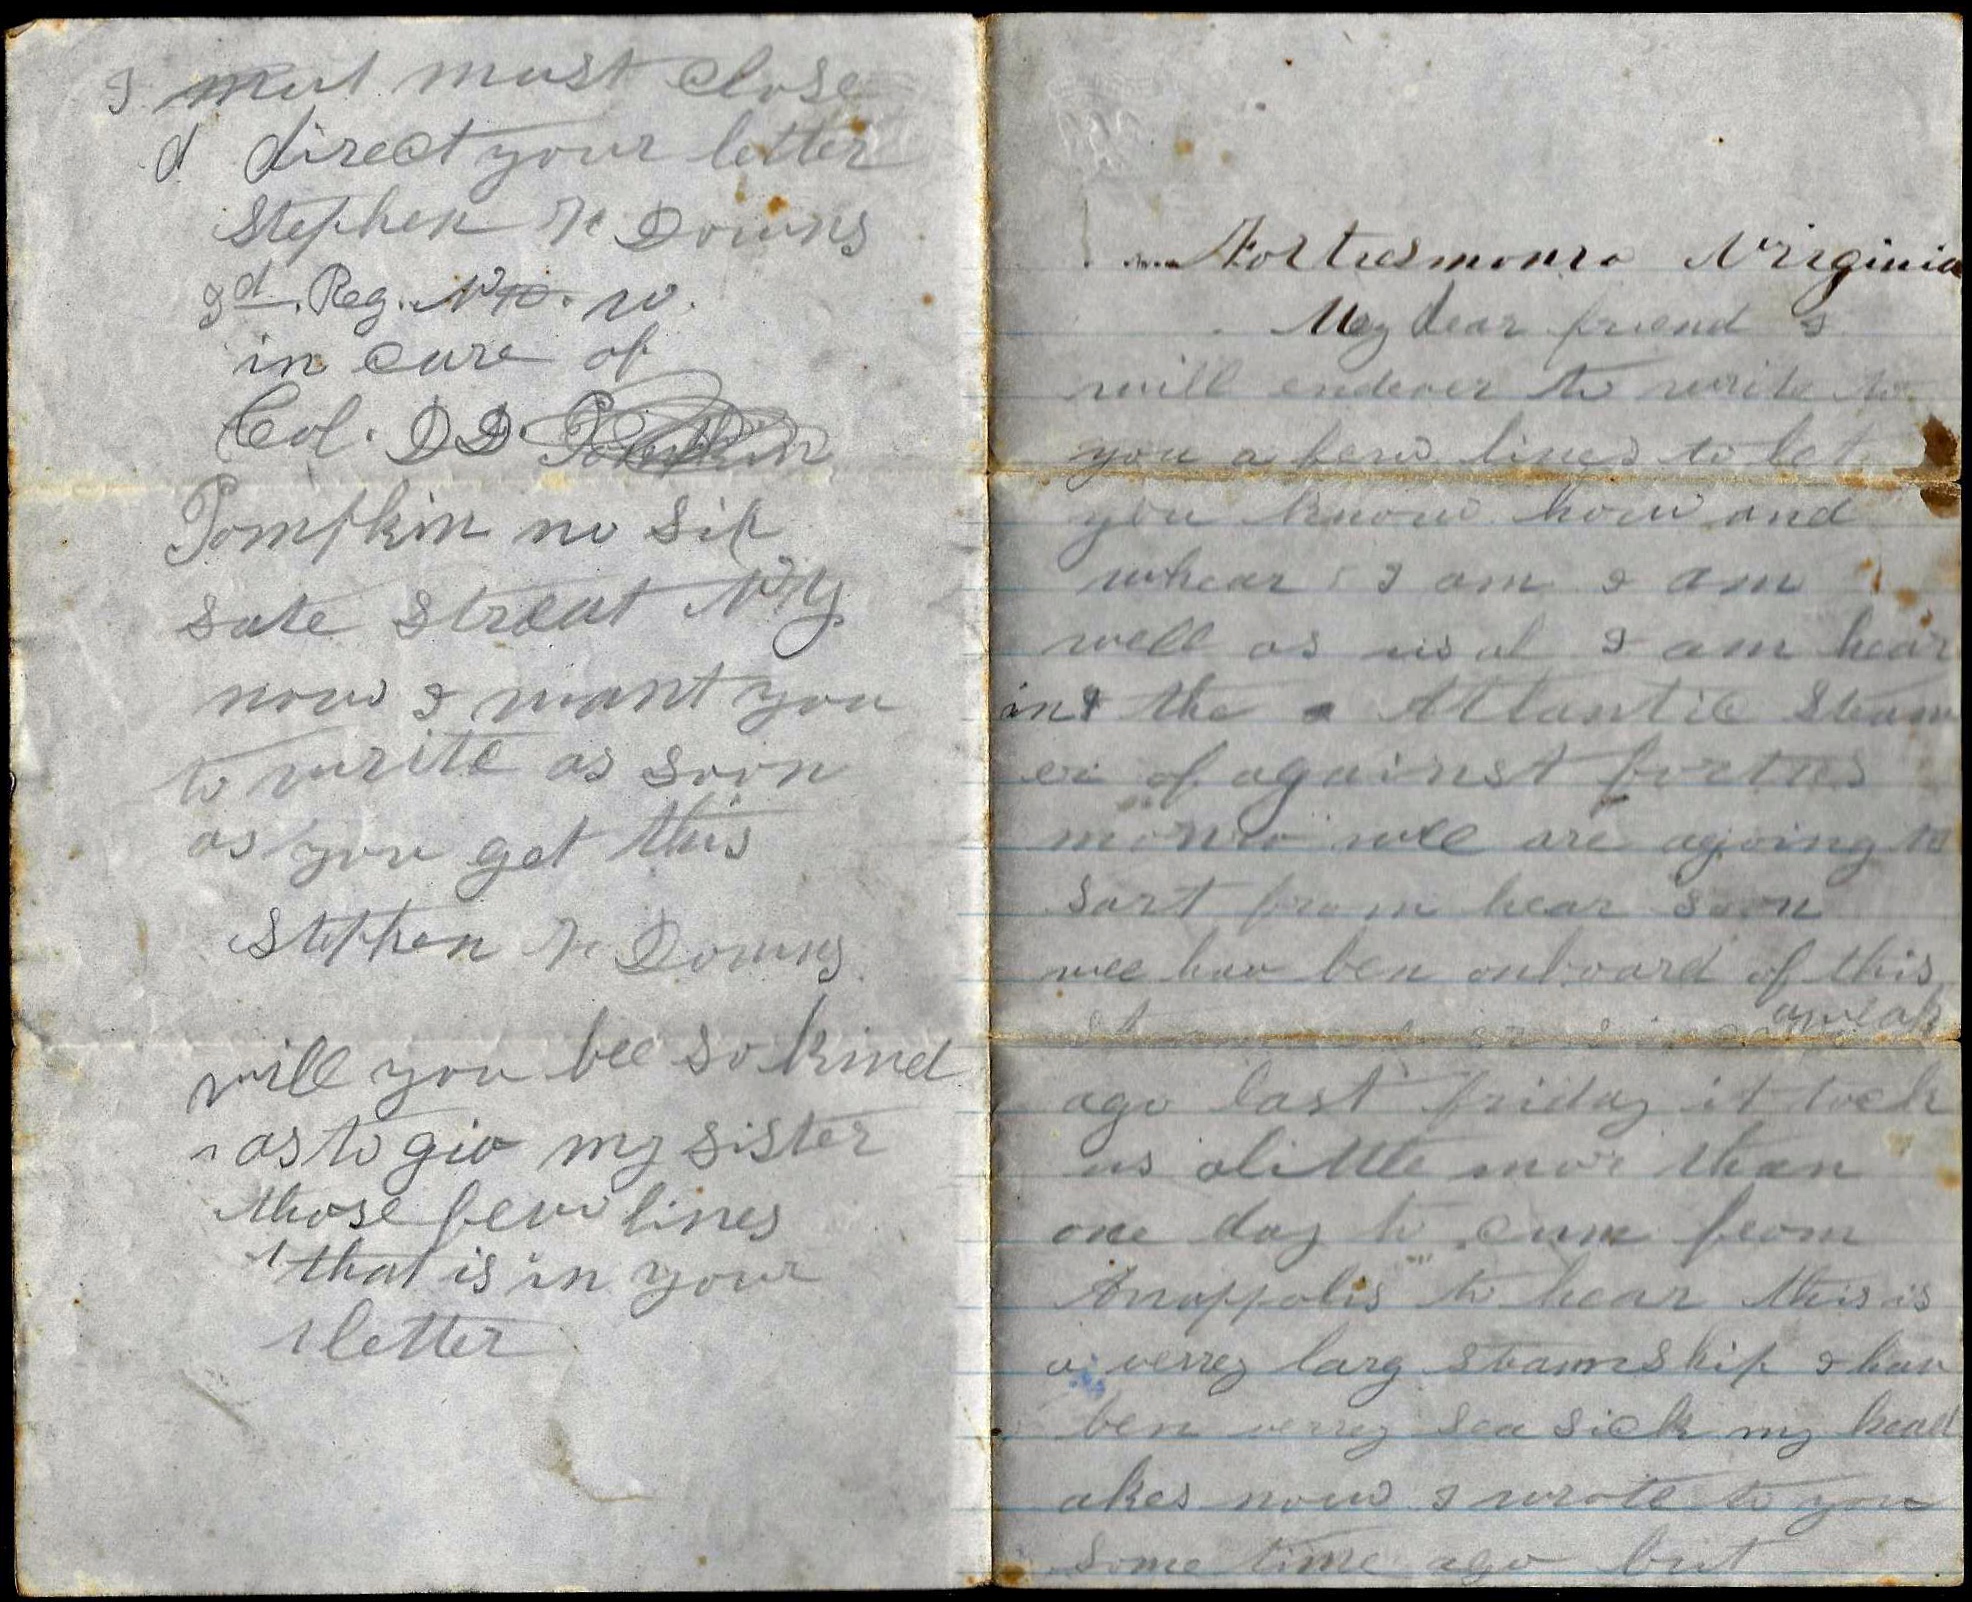 I must close
d direct your letter
Stephen H Downs
3d. Reg. N . v.
in care of
Col. D D.
Pompkin no six
sate streat NY
now I want you
to write as soon
as you get this
Stephen H Downs
will you bee so kind
as to giv my sister
those few lines
that is in your
letter
Fortresmonro Virginia
Mey dear friend I
will endever to write to
you a few lines to let
you know how and
whear I am I am
well as usal I am hear
in the Atlantic Steam
er of against fortres
monro wee are agoing to
sart from hear soon
wee hav ben onboard of this
aweak
ago last friday it tock
us alittle mor than
one day to cum from
Anappolis to hear this is
a verrey larg steamship I hav
ben verrey sea sick my head
akes now I wrote to you
some time ago but